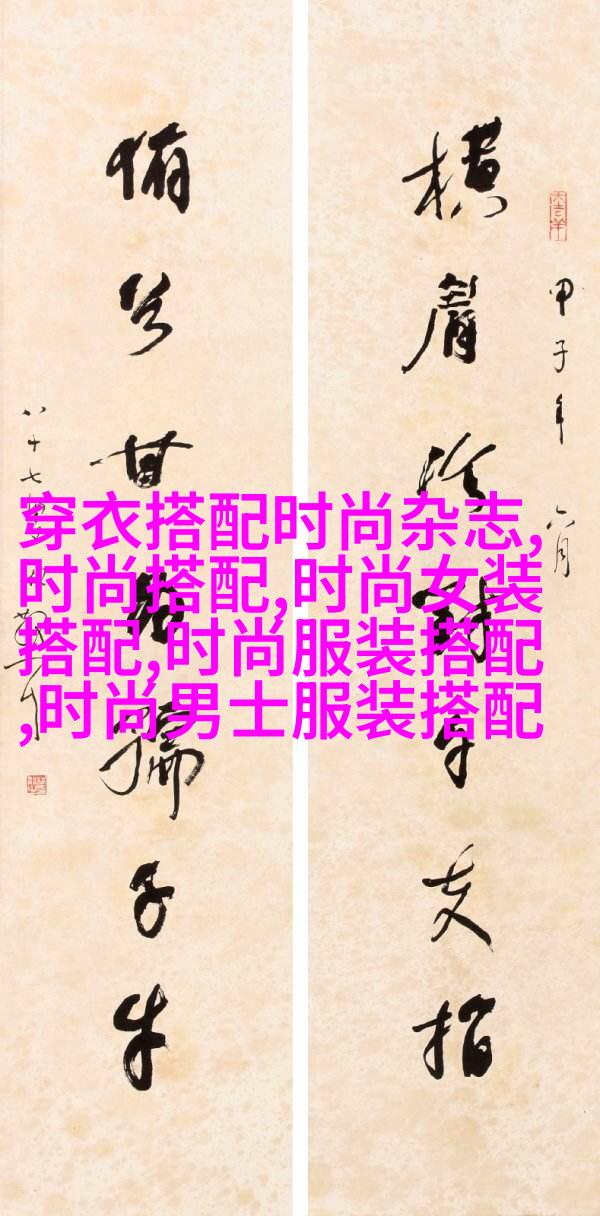 甲子年六月
横眉冷對千夫指
俯首甘為孺子牛
八十七
穿衣搭配时尚杂志,
时尚搭配,时尚女装
搭配,时尚服装搭配
,时尚男士服装搭配